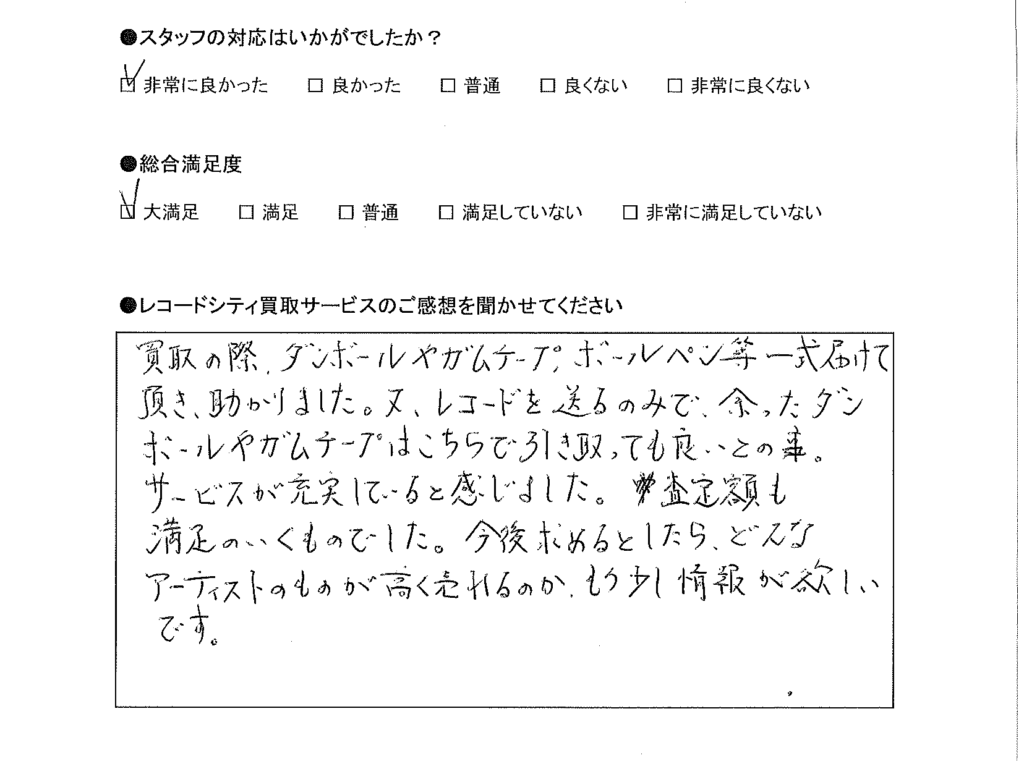 ●スタッフの対応はいかがでしたか？
☑ 非常に良かった □ 良かった □ 普通 □ 良くない □ 非常に良くない
●総合満足度
☑ 大満足 □ 満足 □ 普通 □ 満足していない □ 非常に満足していない
●レコードシティ買取サービスのご感想を聞かせてください
買取の際、ダンボールやガムテープ、ボールペン等一式届けて
頂き、助かりました。又、レコードを送るのみで、余ったダン
ボールやガムテープはこちらで引き取っても良いとの事。
サービスが充実していると感じました。査定額も
満足のいくものでした。今後求めるとしたら、どんな
アーティストのものが高く売れるのか、もう少し情報が欲しい
です。